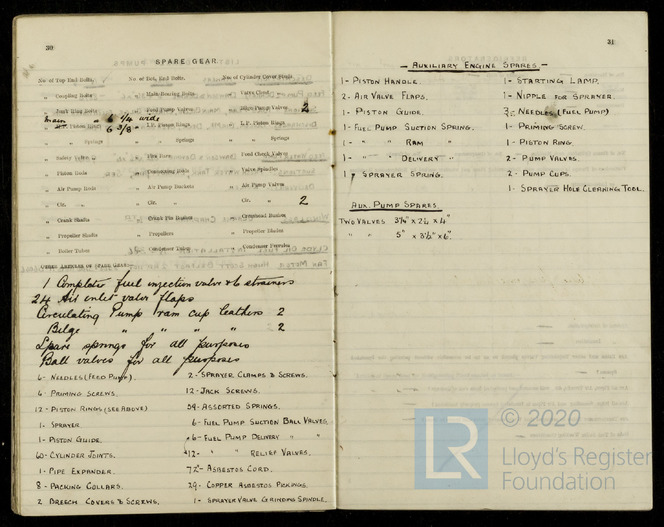 30
SPARE GEAR.
No. of Top End Bolts. No. of Bot. End Bolts. No. of Cylinder Cover Studs
„ Coupling Bolts „ Main Bearing Bolts „ Valve Chest „
„ Junk Ring Bolts „ Feed Pump Valves „ Bilge Pump Valves 2
Main „ 6 1/4 wide
„ Piston Rings 6 3/8 „ „ I.P. Piston Rings „ L.P. Piston Rings
„ „ Springs „ „ Springs „ „ Springs
„ Safety Valve „ „ Fire Bars „ Feed Check Valves
„ Piston Rods „ Connecting Rods „ Valve Spindles
„ Air Pump Rods „ Air Pump Buckets „ Air Pump Valves
„ Cir. „ „ Cir. „ „ Cir. „ 2
„ Crank Shafts „ Crank Pin Bushes „ Crosshead Bushes
„ Propeller Shafts „ Propellers „ Propeller Blades
„ Boiler Tubes „ Condenser Tubes „ Condenser Ferrules
OTHER ARTICLES OF SPARE GEAR:—
1 Complete fuel injection valve & 6 strainers
24 Air inlet valve flaps
Circulating Pump ram cup leathers 2
Bilge „ „ „ „ 2
Spare springs for all purposes
Ball valves for all purposes
6- NEEDLES (FEED PUMP). 2- SPRAYER CLAMPS & SCREWS.
6- PRIMING SCREWS. 12- JACK SCREWS.
12- PISTON RINGS (SEE ABOVE) 54- ASSORTED SPRINGS.
1- SPRAYER 6- FUEL PUMP SUCTION BALL VALVES
1- PISTON GUIDE. 6- FUEL PUMP DELIVERY „ „
60- CYLINDER JOINTS. 12- „ „ RELIEF VALVES.
1- PIPE EXPANDER. 72- ASBESTOS CORD.
8- PACKING COLLARS. 29- COPPER ASBESTOS PICKINGS.
2 BREECH COVERS & SCREWS. 1- SPRAYER VALVE GRINDING SPINDLE.
31
- AUXILIARY ENGINE SPARES -
1- PISTON HANDLE. 1- STARTING LAMP.
2- AIR VALVE FLAPS. 1- NIPPLE FOR SPRAYER
1- PISTON GUIDE. NEEDLES (FUEL PUMP)
1- FUEL PUMP SUCTION SPRING. 1- PRIMING SCREW.
1- „ „ RAM „ 1- PISTON RING.
1- „ „ DELIVERY „ 2- PUMP VALVES.
1- SPRAYER SPRING. 2- PUMP CUPS.
1- SPRAYER HOLE CLEANING TOOL.
AUX. PUMP SPARES
TWO VALVES 3 1/8" x 2 1/2 x 4"
„ „ 5" x 3 1/2" x 6".
LR © 2020
Lloyd's Register
Foundation